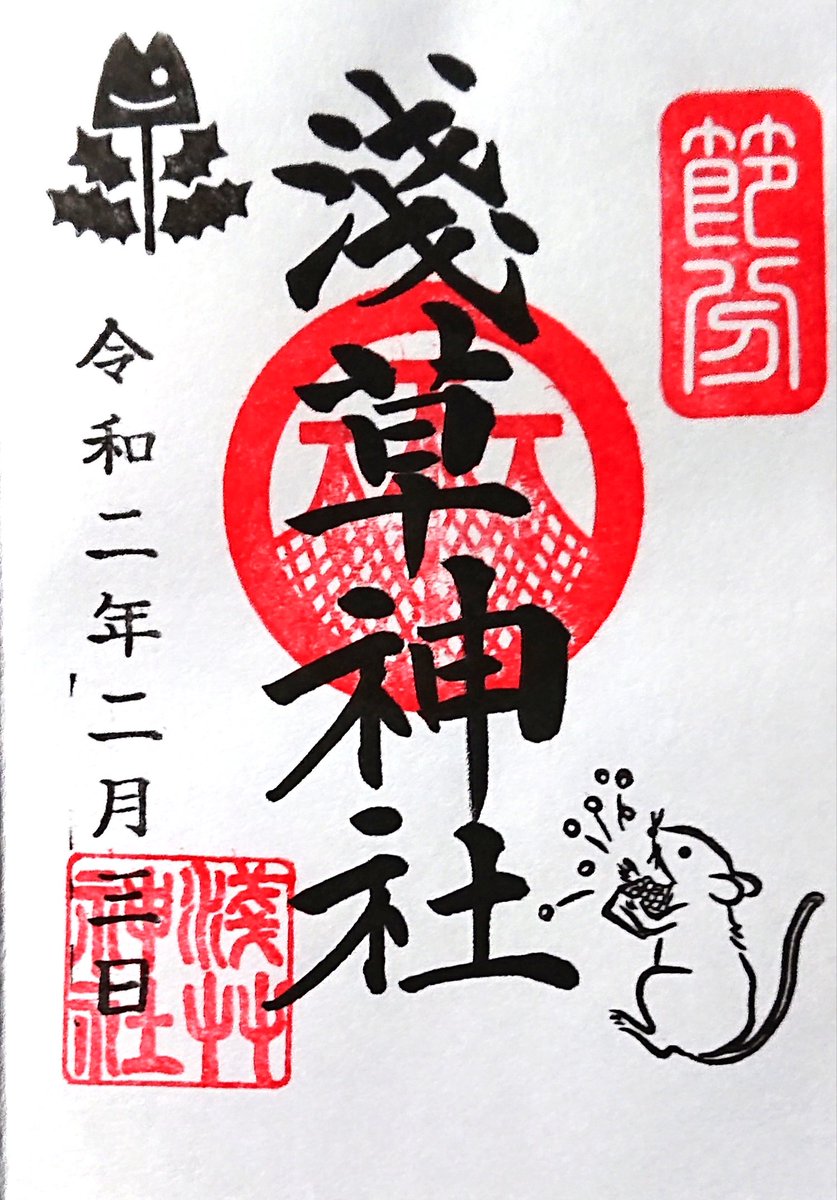 節分
淺草神社
令和二年二月三日
淺艸
神社